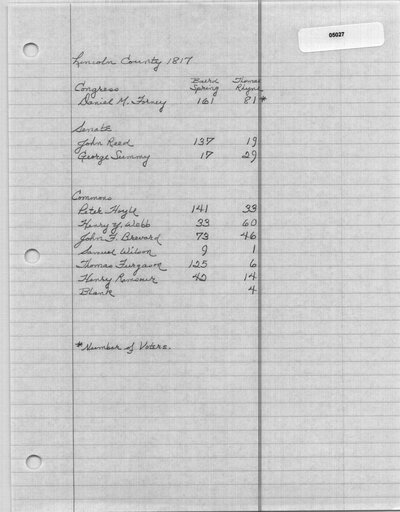 05027
Lincoln County 1817
Baird Thomas
Congress Spring Rhyne
Daniel M. Forney 161 81*
Senate
John Reed 137 19
George Summy 17 29
Commons
Peter Hoyle 141 33
Henry Y. Webb 33 60
John F. Brevard 73 46
Samuel Wilson 9 1
Thomas Furgason 125 6
Henry Ramsour 42 14
Blank 4
*Number of Voters.